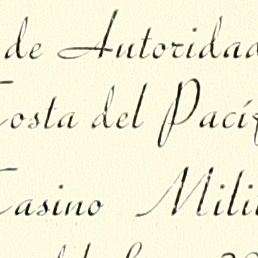 de Autoridad
Costa del Pacíf
Casino Mili